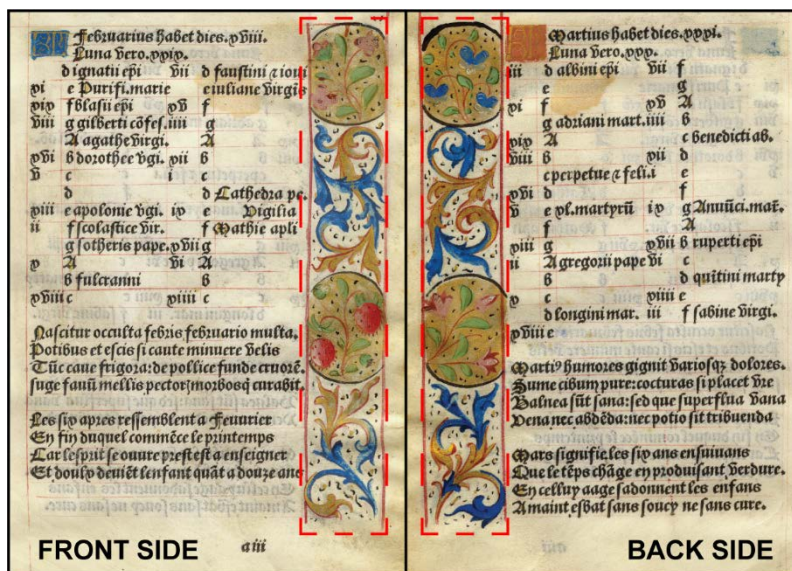 Februarius habet dies. xxviii.
Luna vero. xxix.
d ignatii epi vii d faustini & ioui
xi e Purifi. marie e iuliane virgis
xix f blasii epi xv f
viii g gilberti cõfes. iiii g
A agathe virgi. A
xvi b dorothee vgi. xii b
v c i c
d d Cathedra pe.
xiii e apolonie vgi. ix e Vigilia
ii f scolastice vir. f Mathie apli
g sotheris pape. xvii g
x A vi A
b fulcranni b
xviii c xiiii c
Nascitur occulta febris februario multa.
Potibus et escis si caute minuere velis
Tũc caue frigora: de pollice funde cruorẽ.
suge fauũ mellis pectoris morbosq curabit.
Les six apres ressemblent a Feurier
En fin duquel commẽce le printemps
Car lesprit se ouure prest est a enseigner
Et doulx deuiẽt lenfant quãt a douze ans
FRONT SIDE
aiii
Martius habet dies. xxxi.
Luna vero. xxx.
iii d albini epi vii f
e g
xi f xv A
g adriani mart. iiii b
xix A c benedicti ab.
viii b xii d
c perpetue & feli. i e
xvi d f
v e xl. martyrũ ix g Anuũci. mat.
f A
xiii g xvii b ruperti epi
ii A gregorii pape vi c
b d quĩtini marty
x c xiiii e
d longini mar. iii f sabine virgi.
xviii e
Marti9 humores gignit variosqz dolores.
Sume cibum pure: cocturas si placet vre
Balnea sũt sana: sed que superflua vana
Vena nec abdẽda: nec potio sit tribuenda
Mars signifie les six ans ensuiuans
Que le tẽps chãge en produisant verdure.
En celluy aage sadonnent les enfans
A maint esbat sans soucy ne sans cure.
BACK SIDE